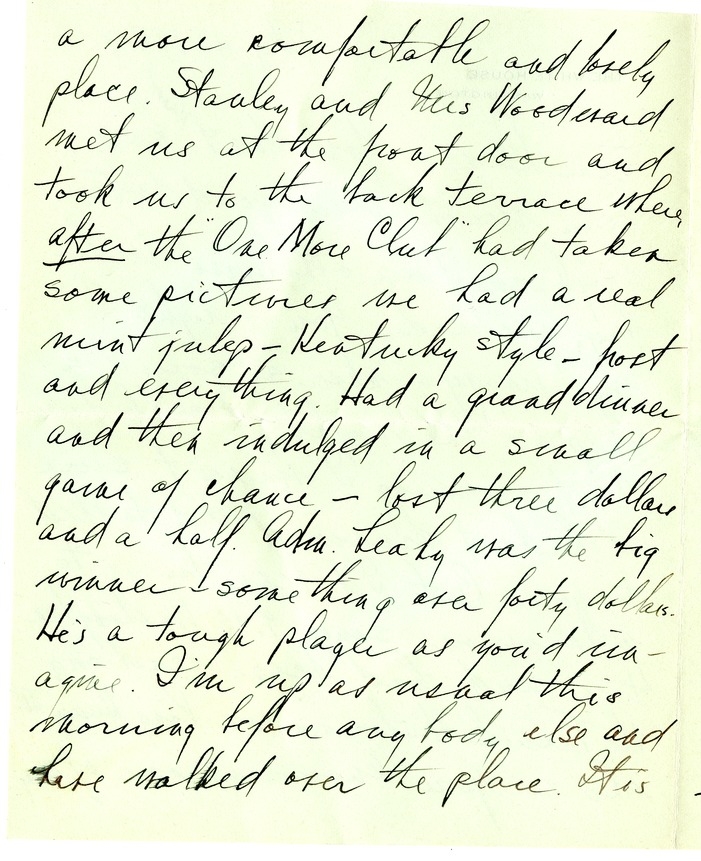 a more comfortable and lovely
place. Stanley and Mrs Woodward
met us at the front door and
took us to the back terrace where,
after the "One More Club" had taken
some pictures we had a real
mint julep – Kentucky style – frost
and everything. Had a grand dinner
and then indulged in a small
game of chance – lost three dollars
and a half. Adm. Leahy was the big
winner – something over forty dollars.
He's a tough player as you'd im-
agine. I'm up as usual this
morning before any body else and
have walked over the place. It is